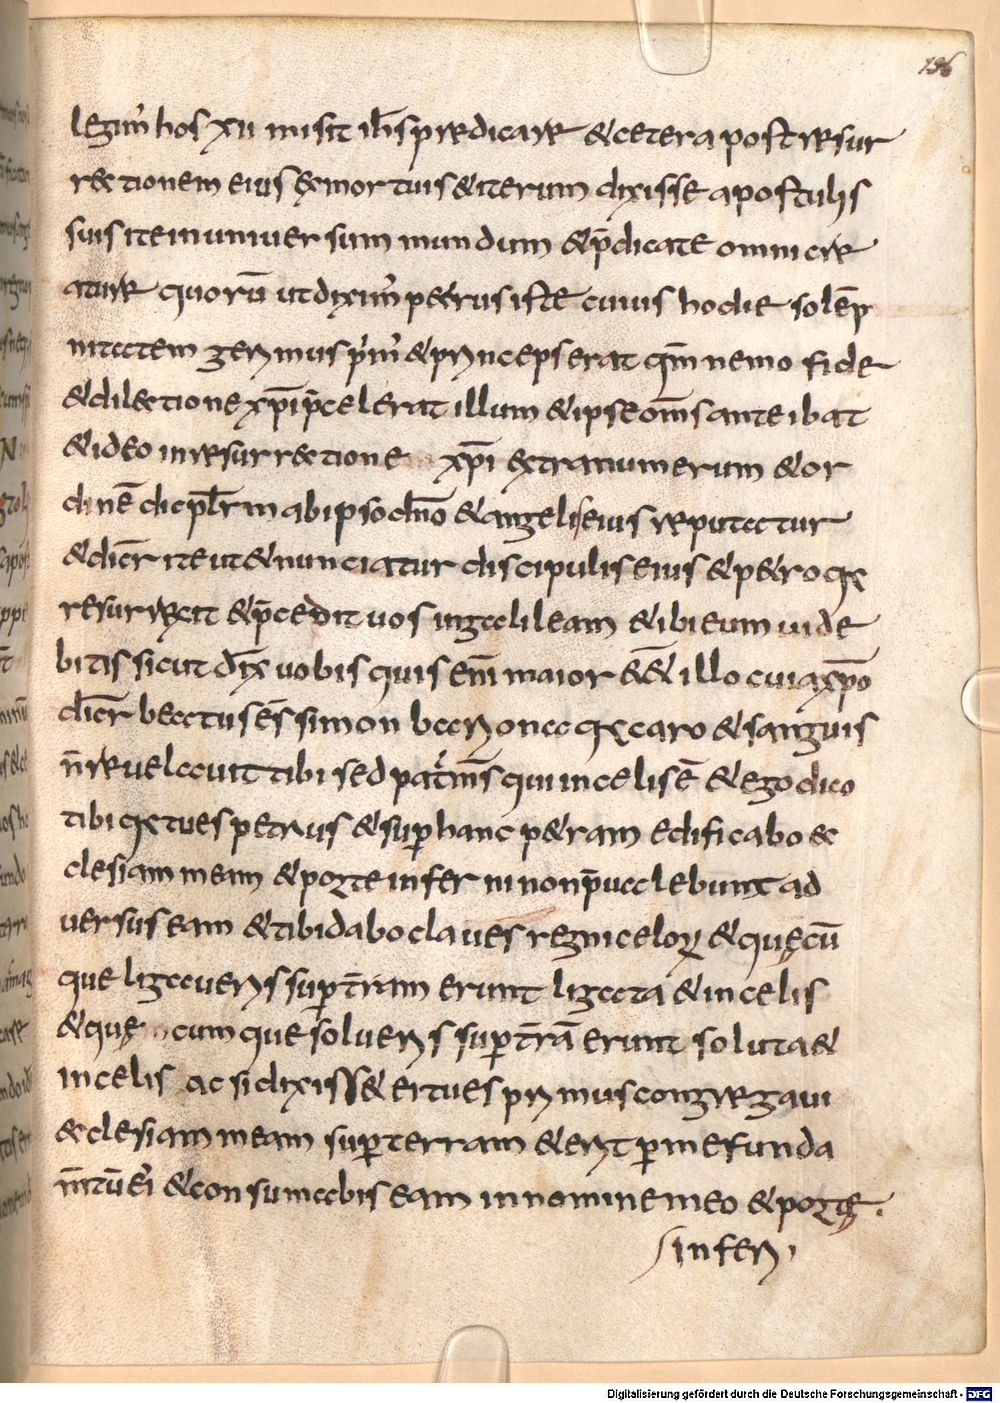 196
legim̅ hos xii misit ih̅s predicare & cetera post resur
r&tionem eius & mortuis & iterum dixisse apostulis
suis ite in uniuersum mundum & p̅dicate omni cre
ature quoru̅ ut dixim̅ p&rus iste cuius hodie sole̅p
nitatem gerimus p̅m̅ & princeps erat qm̅ nemo fide
& dil&tione xp̅i p̅celerat illum & ipse om̅s ante ibat
& ideo in resurr&tione xp̅i extra numerum & or
dine̅ ab ipso dn̅o & angelis eius reputatur
& dic̅r ite ut & nunciatur discipulis eius & p&ro qx
resurrexit & p̅cedit uos in galileam & ibi eum uide
bitis sicut dix̅ uobis quis eni̅ maior illo cui a xp̅o
dic̅r beatus e̅s simon bariona qx caro & sanguis
n̅ reuelauit tibi sed pat̅ m̅s qui in celis e̅ & ego dico
tibi qx tu es petrus & sup̅ hanc p&ram edificabo ec
clesiam meam & porte inferni non p̅ualebunt ad
uersus eam & tibi dabo claues regni celor̅ & quęcu̅
que ligaueris sup̅ t̅ram erunt ligata & in celis
& quę cumque solueris sup̅ t̅ra̅ erunt soluta &
in celis ac si dixiss& er tu es primus congregaui
ecclesiam meam sup̅ terram & erit p̅ me funda
m̅tu̅ ei̅ & consumabis eam in nomine meo & portę.
inferi
Digitalisierung gefördert durch die Deutsche Forschungsgemeinschaft - DFG